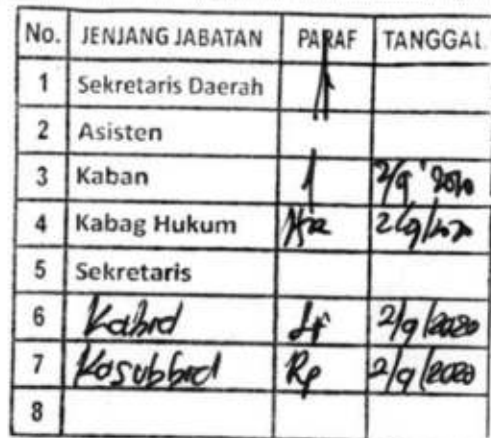 No. JENJANG JABATAN PARAF TANGGAL
1 Sekretaris Daerah
2 Asisten
3 Kaban 2/9 ' 2020
4 Kabag Hukum 2/9/2020
5 Sekretaris
6 Kabid 2/9/2020
7 Kasubbid Rp 2/9/2020
8